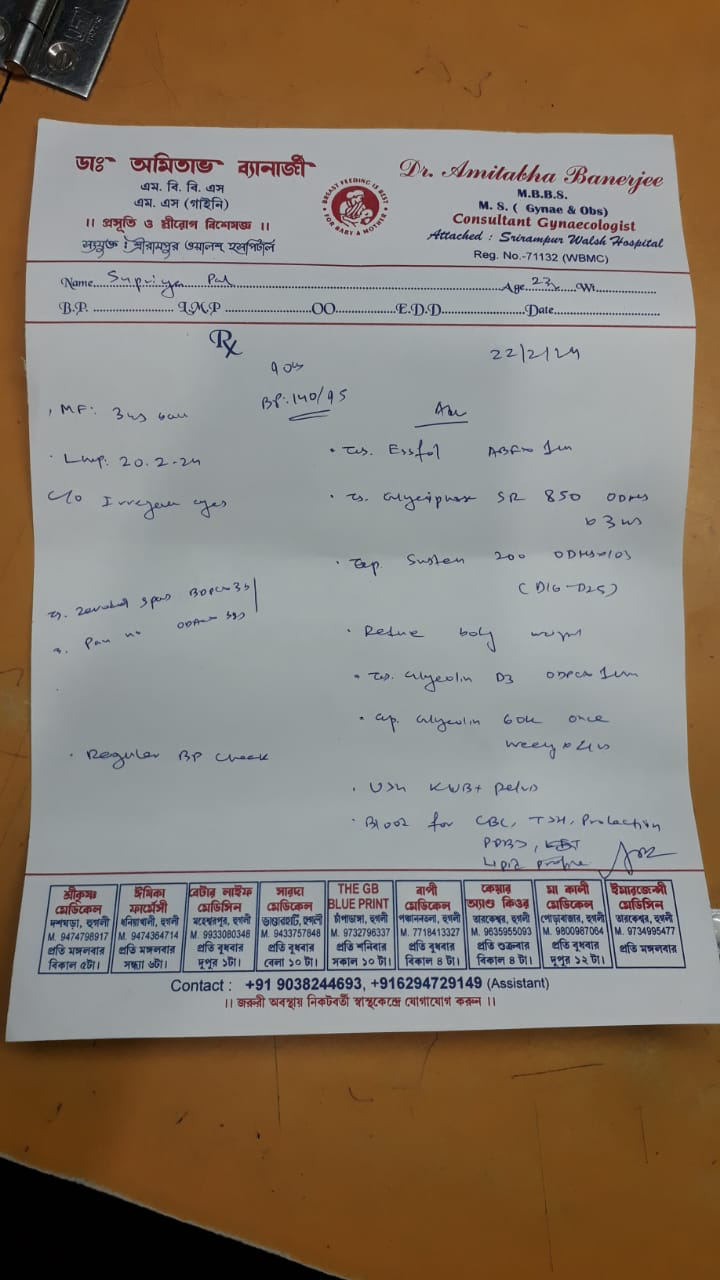 ডাঃ অমিতাভ ব্যানার্জী
এম. বি. বি. এস
এম. এস (গাইনি)
।। প্রসূতি ও স্ত্রীরোগ বিশেষজ্ঞ ।।
সংযুক্ত : শ্রীরামপুর ওয়ালশ হসপিটাল
BREAST FEEDING IS BEST FOR BABY & MOTHER
Dr. Amitabha Banerjee
M.B.B.S.
M. S. ( Gynae & Obs)
Consultant Gynaecologist
Attached : Srirampur Walsh Hospital
Reg. No.-71132 (WBMC)
Name Supriya Pal Age 23 Wt.
B.P. L.M.P OO E.D.D Date
Rx
22/2/24
BP: 140/95
MF: 3
LMP: 20.2.24
C/O Irregular
Regular BP check
Essfol
SR 850
Susten 200
(D16-D25)
Reduce body weight
D3
60k once
weekly
USG KUB + Pelvis
Blood for CBC, TSH, Prolactin
Lipid profile
শ্রীকৃষ্ণ
মেডিকেল
দশঘড়া, হুগলী
M. 9474798917
প্রতি মঙ্গলবার
বিকাল ৫টা।
ঈমিকা
ফার্মেসী
ধনিয়াখালী, হুগলী
M. 9474364714
প্রতি মঙ্গলবার
সন্ধ্যা ৬টা।
বেটার লাইফ
মেডিসিন
মহেশ্বরপুর, হুগলী
M. 9933080348
প্রতি বুধবার
দুপুর ১টা।
সারদা
মেডিকেল
ভান্ডারহাটি, হুগলী
M. 9433757848
প্রতি বুধবার
বেলা ১০ টা।
THE GB
BLUE PRINT
চাঁপাডাঙ্গা, হুগলী
M. 9732796337
প্রতি শনিবার
সকাল ১০ টা।
বাপী
মেডিকেল
পঞ্চাননতলা, হুগলী
M. 7718413327
প্রতি বুধবার
বিকাল ৪ টা।
কেয়ার
অ্যান্ড কিওর
তারকেশ্বর, হুগলী
M. 9635955093
প্রতি শুক্রবার
বিকাল ৪ টা।
মা কালী
মেডিকেল
পোড়াবাজার, হুগলী
M. 9800987064
প্রতি বুধবার
দুপুর ১২ টা।
ইমারজেন্সী
মেডিসিন
তারকেশ্বর, হুগলী
M. 9734995477
প্রতি মঙ্গলবার
Contact : +91 9038244693, +916294729149 (Assistant)
।। জরুরী অবস্থায় নিকটবর্তী স্বাস্থকেন্দ্রে যোগাযোগ করুন ।।